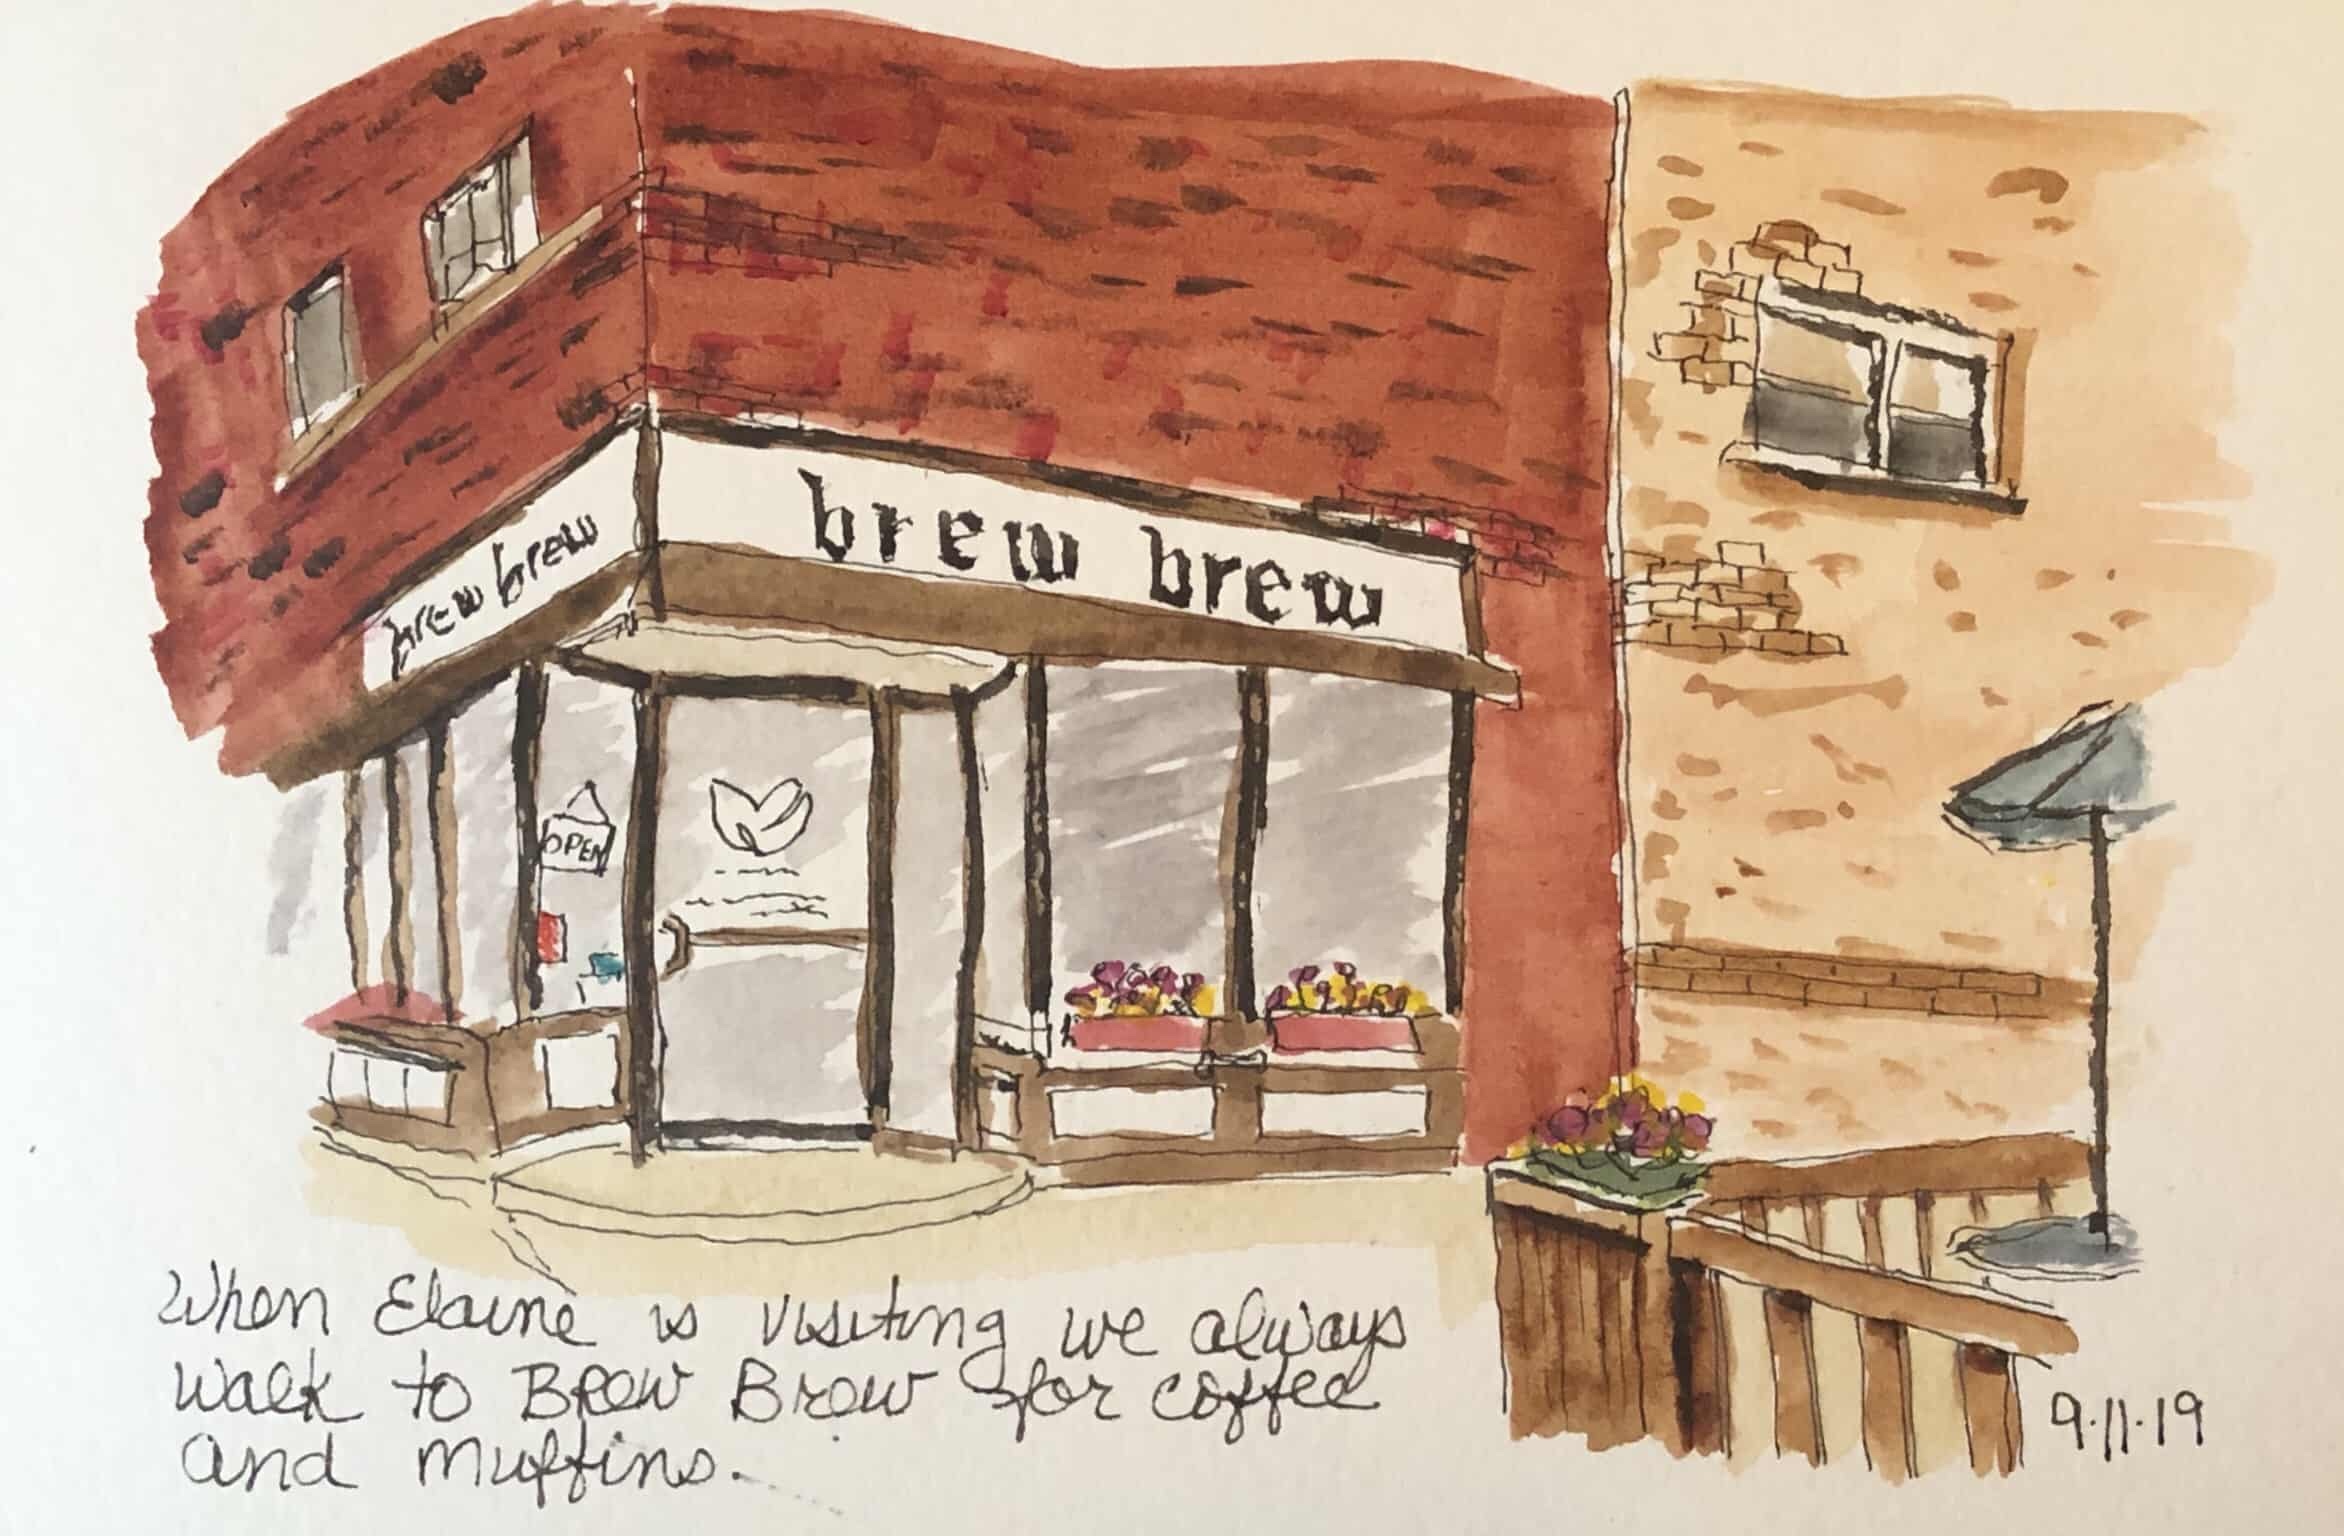 brew brew
brew brew
OPEN
When Elaine is visiting we always
walk to Brew Brew for coffee
and muffins.
9.11.19